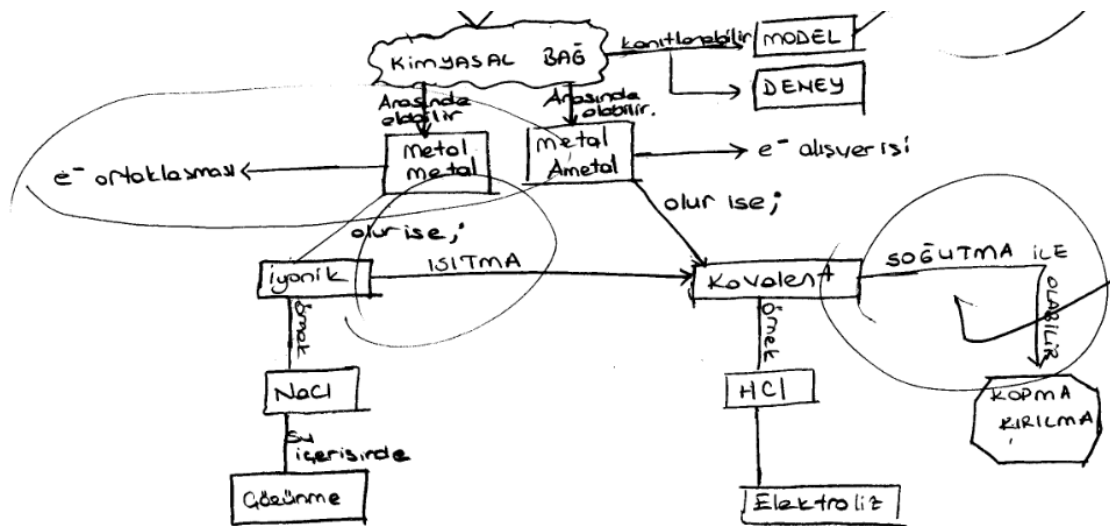 KİMYASAL BAĞ
kanıtlanabilir
MODEL
DENEY
Arasında
olabilir
Arasında
olabilir.
Metal
metal
Metal
Ametal
e⁻ ortaklasması
e⁻ alışverisi
olur ise;
olur ise;
iyonik
ISITMA
Kovalent
SOĞUTMA İLE
OLABİLİR
örnek
örnek
NaCl
HCl
KOPMA
KIRILMA
su
içerisinde
Çözünme
Elektroliz